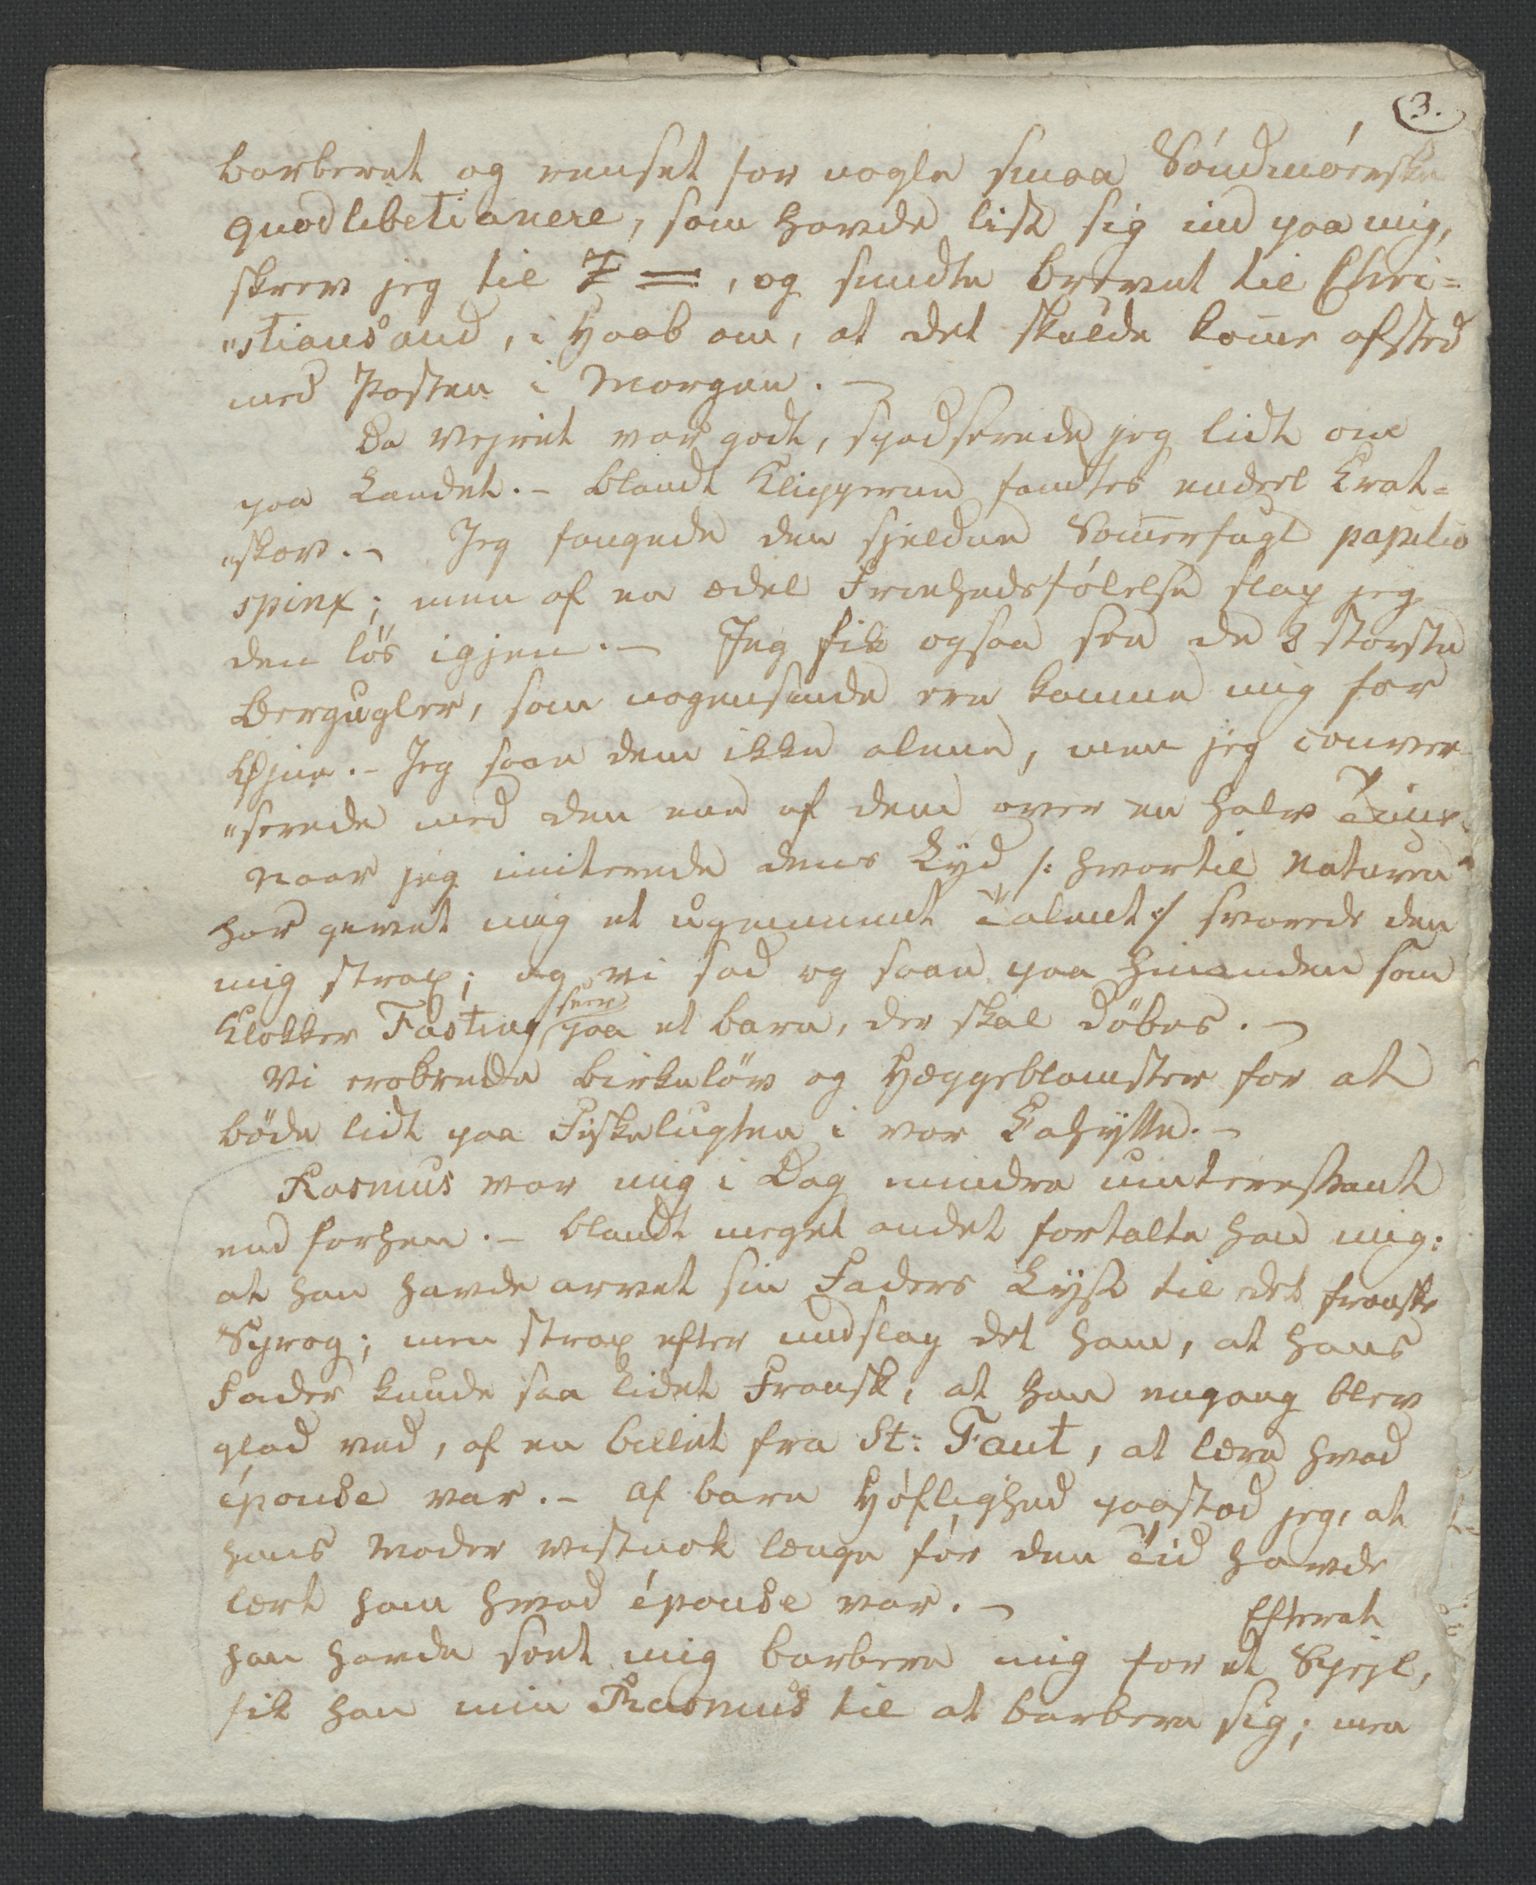 3.
barberet og renset for nogle smaa Söndmörske
quodlibetianere, som havde list sig ind paa mig,
skrev jeg til F =, og sendte brevet til Chri=
"stiansand, i Haab om, at det skulde kom̄e afsted
med Posten i Morgen. —
Da Vejret var godt, spadserede jeg lidt om
paa Landet. – blandt Klipperne fandtes endeel Krat=
"skov. – Jeg fangede den sjeldne Som̄erfugl papilio
spinx; men af en ædel Friehedsfölelse slap jeg
den lös igjen. — Jeg fik ogsaa see de 2 störste
Bergugler, som nogensinde ere komne mig for
Öjne. – Jeg saae dem ikke alene, men jeg conver
"serede med den ene af dem over en halv Time.
Naar jeg imiterede dens Lyd /: hvortil Naturen
har gevet mig et ugemeent Talent :/ svarede den
mig strax; og vi sad og saae paa hinanden som
Klokker Fasting seer paa et barn, der skal döbes. —
Vi erobrede Birkelöv og Hæggeblomster for at
böde lidt paa Fiskelugten i vor Kahytte. –
Rasmus var mig i Dag mindre uinteressant
end forhen. – blandt meget andet fortalte han mig:
at han havde arvet sin Faders Lyst til det franske
Sprog; men strax efter undslap det ham, at hans
Fader kunde saa lidet Fransk, at han engang blev
glad ved, af en billet fra St: Faut, at lære hvad
épouse var. – Af bare Höflighed paastod jeg, at
hans Moder vistnok længe för den Tid havde
lært ham hvad épouse var. —
Efterat
han havde seet mig barbere mig for et Spejl,
fik han min Rasmus til at barbere sig; men